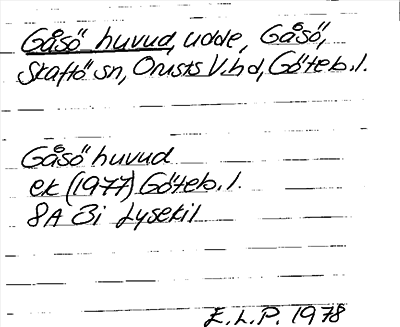 Gåsö huvud, udde, Gåsö,
Skaftö sn, Orusts V. hd, Göteb. l.
Gåsö huvud
ek (1977) Göteb. l.
8A 3i Lysekil
E.L.P. 1978